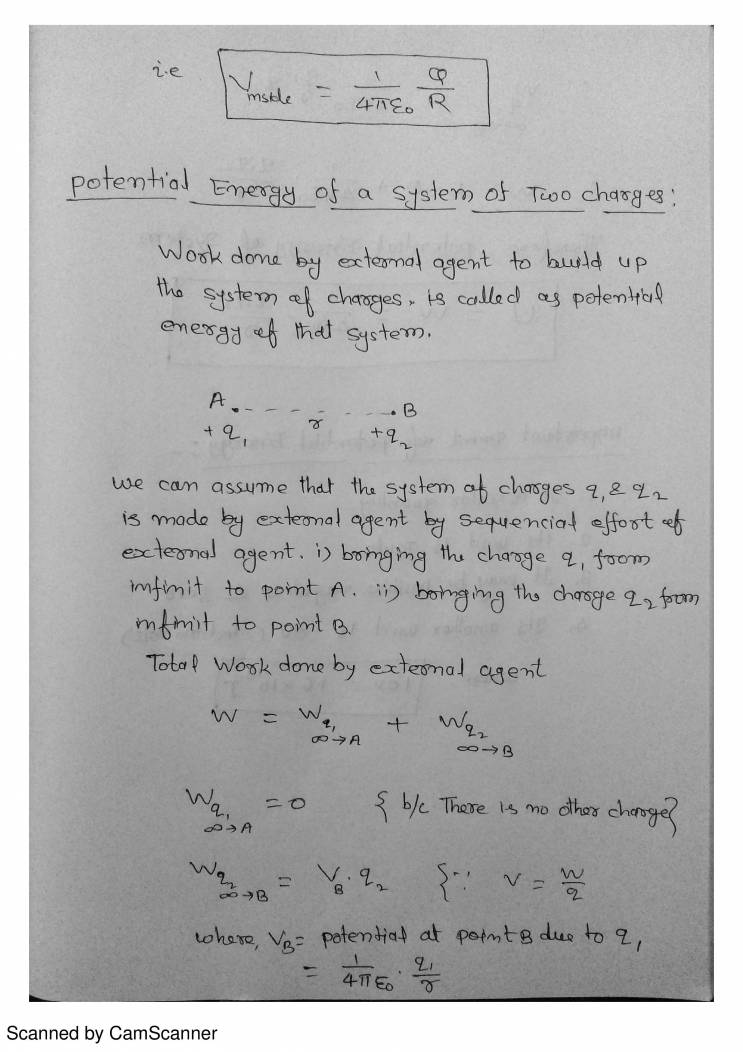 i.e V inside = 1/4πε₀ Q/R
Potential Energy of a system of Two charges:
Work done by external agent to build up
the system of charges, is called as potential
energy of that system.
A . - - - - r - - - - . B
+q₁ +q₂
we can assume that the system of charges q₁ & q₂
is made by external agent by sequencial effort of
external agent. i) bringing the charge q₁ from
infinit to point A. ii) bringing the charge q₂ from
infinit to point B.
Total Work done by external agent
W = W q₁ ∞→A + W q₂ ∞→B
W q₁ ∞→A = 0 { b/c There is no other charge}
W q₂ ∞→B = V_B . q₂ {∵ V = W/q
where, V_B = potential at point B due to q₁
= 1/4πε₀ . q₁/r
Scanned by CamScanner